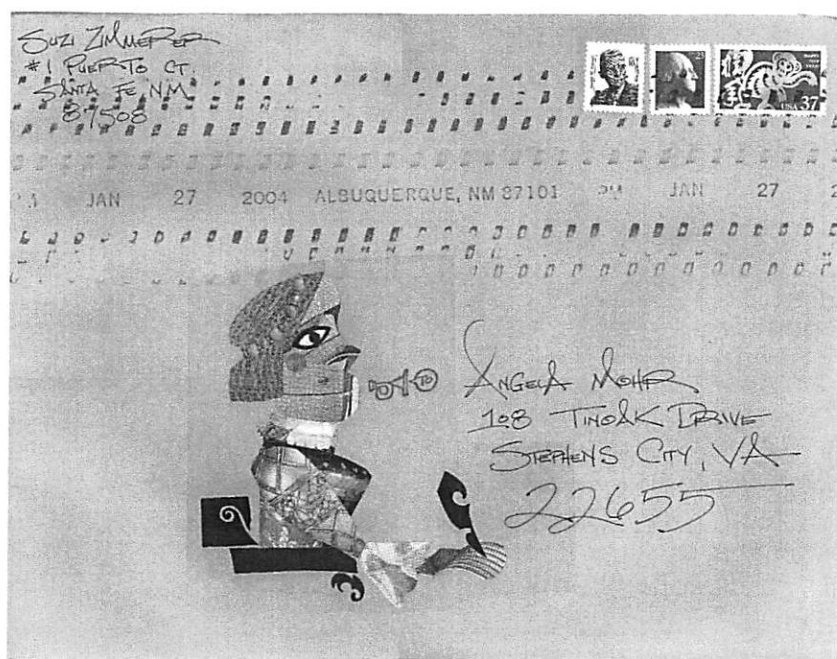 Suzi Zimmerer
#1 Puerto Ct
Santa Fe, NM
87508
USA 37
JAN 27 2004 ALBUQUERQUE, NM 87101 PM JAN 27 2
TO
Angela Mohr
108 Tinoak Drive
Stephens City, VA
22655